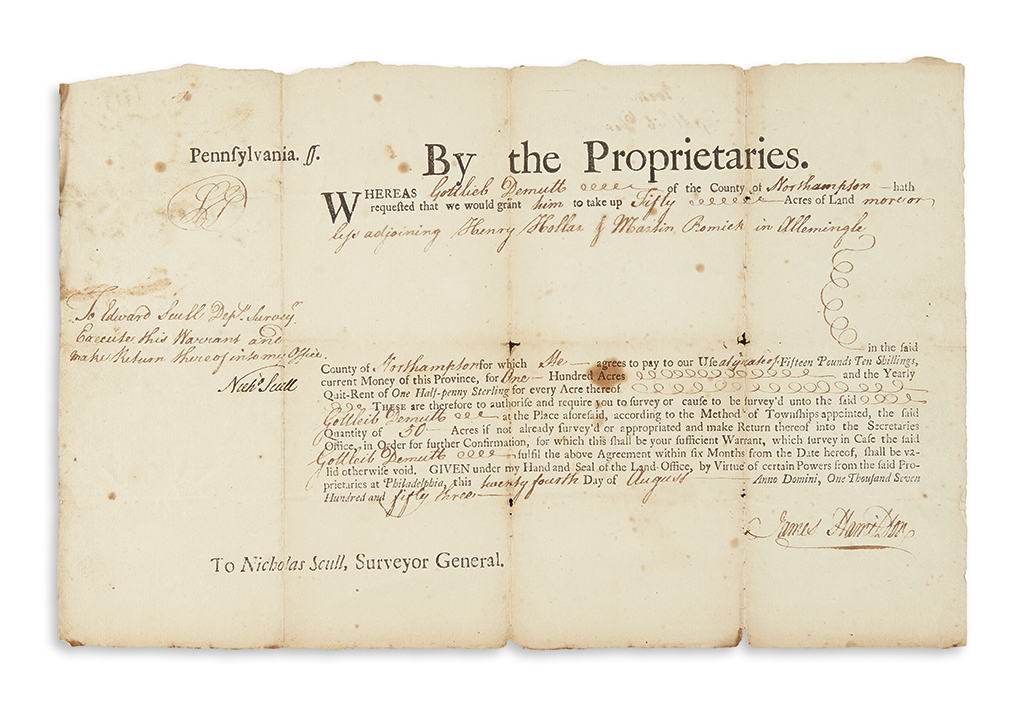 Pennsylvania. ss.
By the Proprietaries.
WHEREAS Gottlieb Demutt of the County of Northampson hath
requested that we would grant him to take up Fifty Acres of Land more or
less adjoining Henry Hollar & Martin Romick in Allemingle
in the said
To Edward Scull Depy. Survey.r
Execute this Warrant and
make Return thereof into my Office.
Nichs. Scull
County of Northampson for which He agrees to pay to our Use at y.e rate of Fifteen Pounds Ten Shillings,
current Money of this Province, for One Hundred Acres and the Yearly
Quit-Rent of One Half-penny Sterling for every Acre thereof
THESE are therefore to authorise and require you to survey or cause to be survey'd unto the said
Gottleib Demutt at the Place aforesaid, according to the Method of Townships appointed, the said
Quantity of 50 Acres if not already survey'd or appropriated and make Return thereof into the Secretaries
Office, in Order for further Confirmation, for which this shall be your sufficient Warrant, which survey in Case the said
Gottleib Demutt fulfil the above Agreement within six Months from the Date hereof, shall be va-
lid otherwise void. GIVEN under my Hand and Seal of the Land-Office, by Virtue of certain Powers from the said Pro-
prietaries at Philadelphia, this twenty fourth Day of August Anno Domini, One Thousand Seven
Hundred and fifty three
James Hamilton
To Nicholas Scull, Surveyor General.